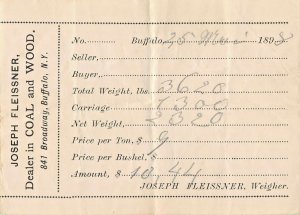 JOSEPH FLEISSNER,
Dealer in COAL and WOOD,
841 Broadway, Buffalo, N.Y.
No. Buffalo, 25 Mai 1898
Seller,
Buyer,
Total Weight, lbs. 3620
Carriage 1300
Net Weight, 2320
Price per Ton, $ 9
Price per Bushel, $
Amount, $ 10,44
JOSEPH FLEISSNER, Weigher.